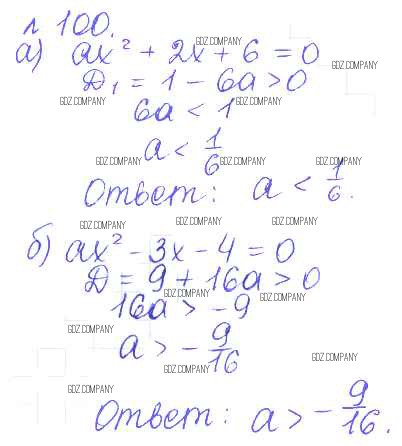 № 100.
а) ax² + 2x + 6 = 0
GDZ.COMPANY
Д₁ = 1 − 6a > 0
GDZ.COMPANY
GDZ.COMPANY GDZ.COMPANY
6a < 1
a < 1/6
GDZ.COMPANY GDZ.COMPANY GDZ.COMPANY
Ответ: a < 1/6.
GDZ.COMPANY GDZ.COMPANY GDZ.COMPANY
б) ax² − 3x − 4 = 0
Д = 9 + 16a > 0
GDZ.COMPANY GDZ.COMPANY
16a > −9
GDZ.COMPANY
a > − 9/16
GDZ.COMPANY GDZ.COMPANY
GDZ.COMPANY
Ответ: a > − 9/16.